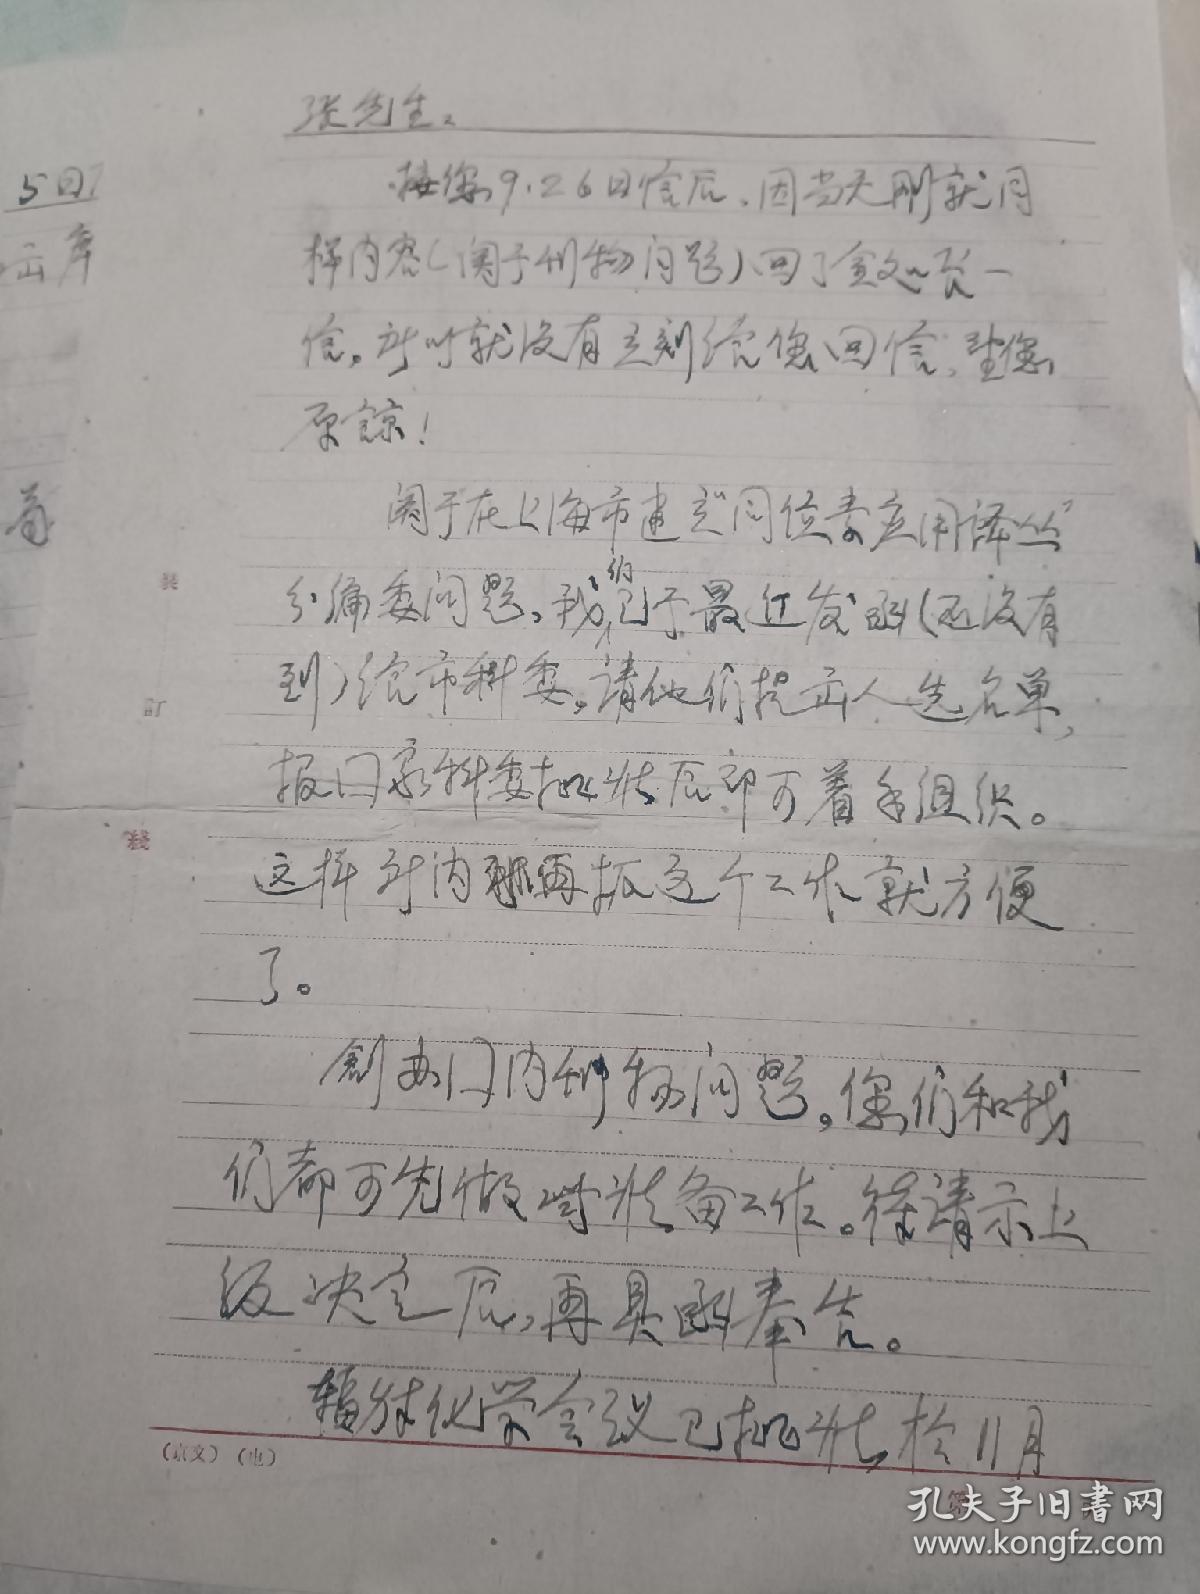 张先生：
接您9.26日信后，因当天刚就同
样内容（关于刊物问题）回了
信，所以就没有立刻给您回信，望您
原谅！
关于在上海市建立"同位素应用译丛"
分编委问题，我们已于最近发函（还没有
到）给市科委，请他们提出人选名单，
报国家科委批准后即可着手组织。
这样所内再抓这个工作就方便
了。
创办国内刊物问题，您们和我
们都可先做些准备工作。待请示上
级决定后，再具函奉告。
辐射化学会议已批准于11月
5日
出席
装
訂
綫
(京文) (电)
第
孔夫子旧書网
www.kongfz.com